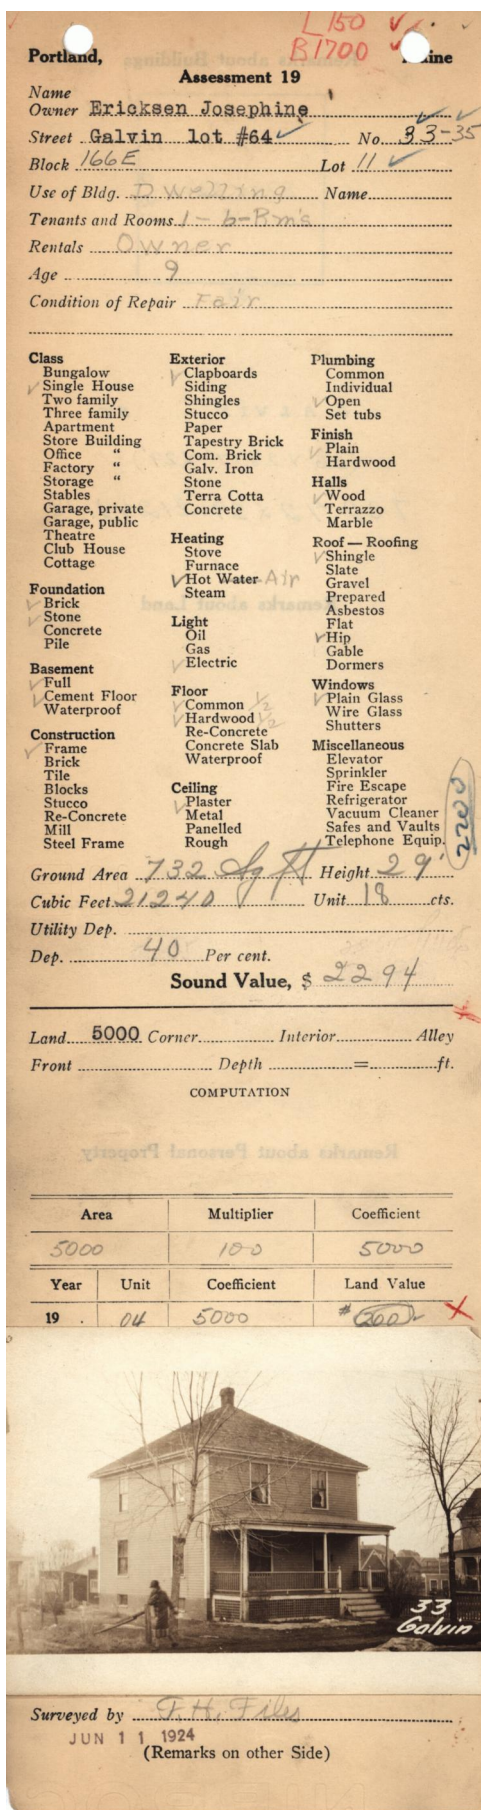 L 150 ✓
B 1700 ✓
Portland, Maine
Assessment 19
Name
Owner Ericksen Josephine
Street Galvin lot #64 ✓ No. 33-35
Block 166E Lot 11 ✓
Use of Bldg. Dwelling Name
Tenants and Rooms 1-6-Rm's
Rentals Owner
Age 9
Condition of Repair Fair
Class
Bungalow
✓ Single House
Two family
Three family
Apartment
Store Building
Office "
Factory "
Storage "
Stables
Garage, private
Garage, public
Theatre
Club House
Cottage
Foundation
✓ Brick
✓ Stone
Concrete
Pile
Basement
✓ Full
✓ Cement Floor
Waterproof
Construction
✓ Frame
Brick
Tile
Blocks
Stucco
Re-Concrete
Mill
Steel Frame
Exterior
✓ Clapboards
Siding
Shingles
Stucco
Paper
Tapestry Brick
Com. Brick
Galv. Iron
Stone
Terra Cotta
Concrete
Heating
Stove
Furnace
✓ Hot Water Air
Steam
Light
Oil
Gas
✓ Electric
Floor
✓ Common 1/2
✓ Hardwood 1/2
Re-Concrete
Concrete Slab
Waterproof
Ceiling
✓ Plaster
Metal
Panelled
Rough
Plumbing
Common
Individual
✓ Open
Set tubs
Finish
✓ Plain
Hardwood
Halls
✓ Wood
Terrazzo
Marble
Roof — Roofing
✓ Shingle
Slate
Gravel
Prepared
Asbestos
Flat
✓ Hip
Gable
Dormers
Windows
✓ Plain Glass
Wire Glass
Shutters
Miscellaneous
Elevator
Sprinkler
Fire Escape
Refrigerator
Vacuum Cleaner
Safes and Vaults
Telephone Equip.
2200
Ground Area 732 Sq ft Height 29'
Cubic Feet 21240 Unit 18 cts.
Utility Dep.
Dep. 40 Per cent.
Sound Value, $ 2294
Land 5000 Corner Interior Alley
Front Depth = ft.
COMPUTATION
Remarks about Personal Property
Area Multiplier Coefficient
5000 100 5000
Year Unit Coefficient Land Value
19 04 5000 # 200
33
Galvin
Surveyed by F. H. Files
JUN 11 1924
(Remarks on other Side)